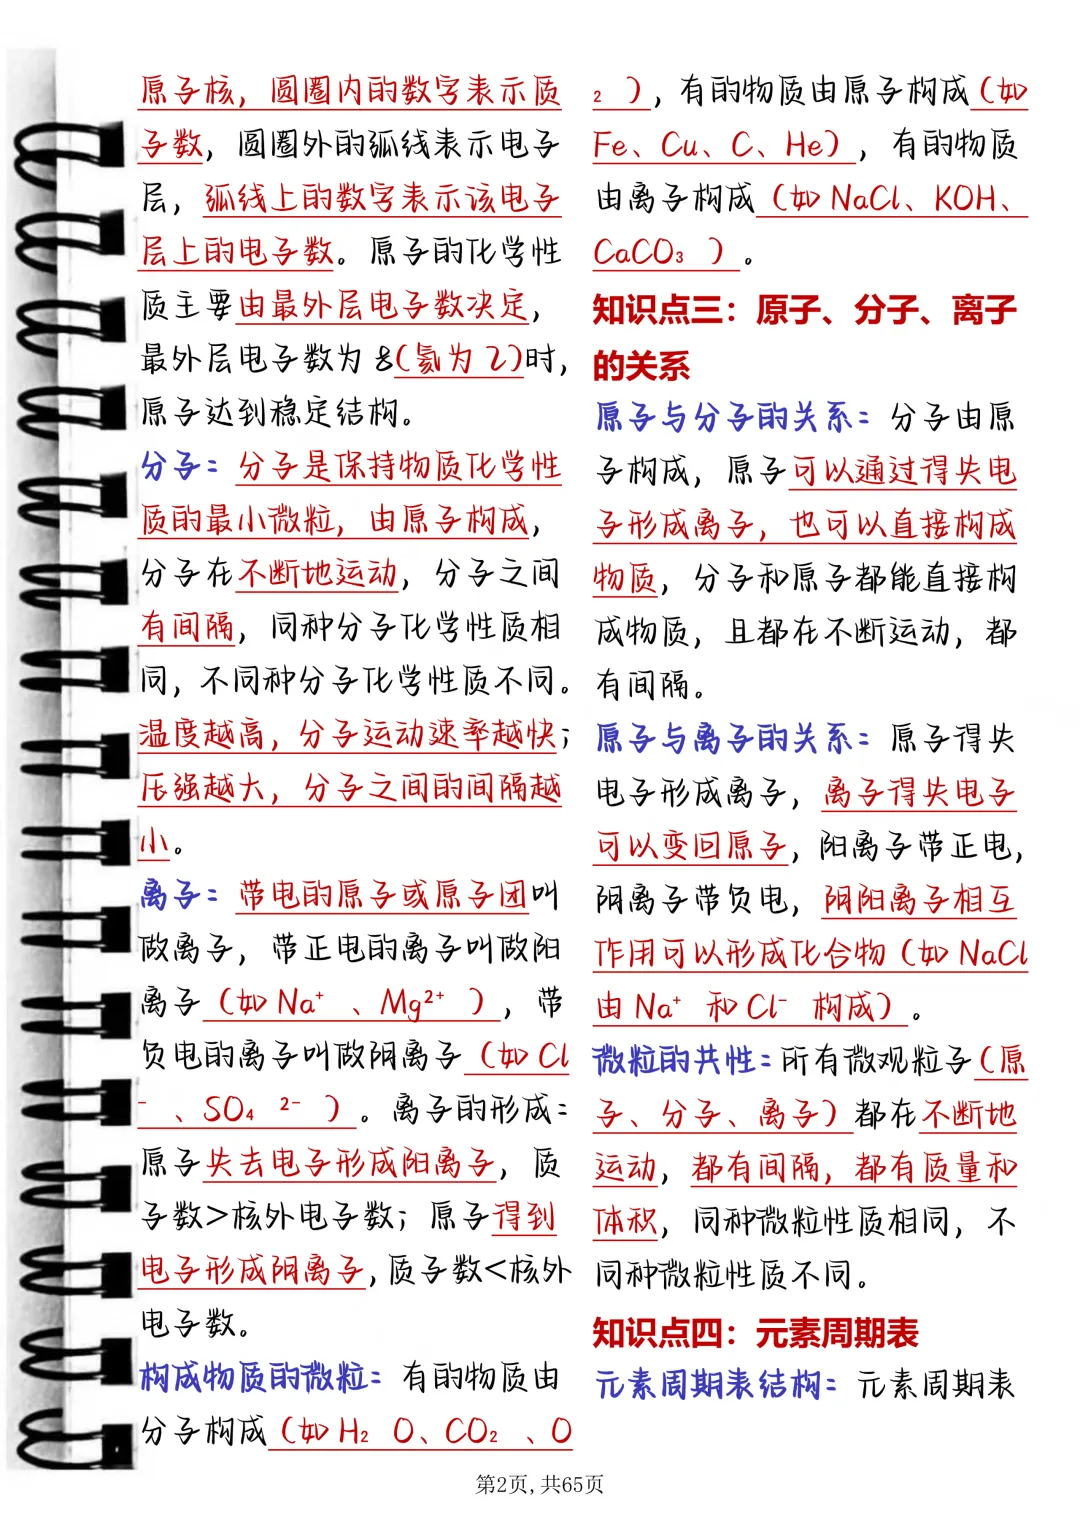 原子核，圆圈内的数字表示质
子数，圆圈外的弧线表示电子
层，弧线上的数字表示该电子
层上的电子数。原子的化学性
质主要由最外层电子数决定，
最外层电子数为8(氦为2)时，
原子达到稳定结构。
分子：分子是保持物质化学性
质的最小微粒，由原子构成，
分子在不断地运动，分子之间
有间隔，同种分子化学性质相
同，不同种分子化学性质不同。
温度越高，分子运动速率越快；
压强越大，分子之间的间隔越
小。
离子：带电的原子或原子团叫
做离子，带正电的离子叫做阳
离子（如Na⁺、Mg²⁺），带
负电的离子叫做阴离子（如Cl
⁻、SO₄ ²⁻）。离子的形成：
原子失去电子形成阳离子，质
子数>核外电子数；原子得到
电子形成阴离子，质子数<核外
电子数。
构成物质的微粒：有的物质由
分子构成（如H₂ O、CO₂ 、O
₂ ），有的物质由原子构成（如
Fe、Cu、C、He），有的物质
由离子构成（如NaCl、KOH、
CaCO₃ ）。
知识点三：原子、分子、离子
的关系
原子与分子的关系：分子由原
子构成，原子可以通过得失电
子形成离子，也可以直接构成
物质，分子和原子都能直接构
成物质，且都在不断运动，都
有间隔。
原子与离子的关系：原子得失
电子形成离子，离子得失电子
可以变回原子，阳离子带正电，
阴离子带负电，阴阳离子相互
作用可以形成化合物（如NaCl
由Na⁺ 和Cl⁻ 构成）。
微粒的共性：所有微观粒子（原
子、分子、离子）都在不断地
运动，都有间隔，都有质量和
体积，同种微粒性质相同，不
同种微粒性质不同。
知识点四：元素周期表
元素周期表结构：元素周期表
第2页,共65页